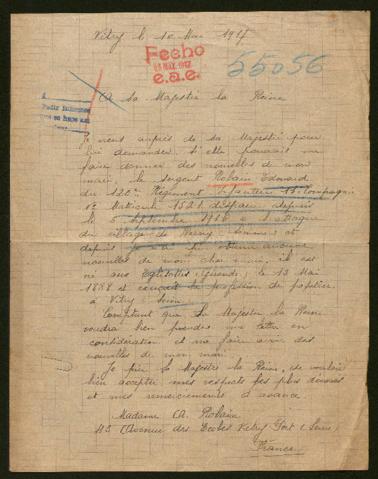 Vitry le 10 Mai 1917
Fecho
MAI. 1917
e.a.e.
55056
A Sa Majesté la Reine
Je viens auprès de sa Majesté pour
lui demander si elle pourrait me
faire donner des nouvelles de mon
mari, le sergent Robain Edouard
du 120e Régiment Infanterie 11e Compagnie
Matricule 1521 disparu depuis
le 5 septembre 1916 à l'attaque
du village de
depuis je n'ai pu obtenir aucune
nouvelles de mon cher mari, il est
né aux Eglisottes (Gironde) le 13 Mai
1888 et exerçait la profession de papetier
à Vitry Seine
Comptant que Sa Majesté la Reine
voudra bien prendre ma lettre en
considération et me faire avoir des
nouvelles de mon mari
Je prie Sa Majesté la Reine, de vouloir
bien accepter mes respects les plus dévoués
et mes remerciements d'avance
Madame A. Robain
45 Avenue des Ecoles Vitry Port (Seine)
France